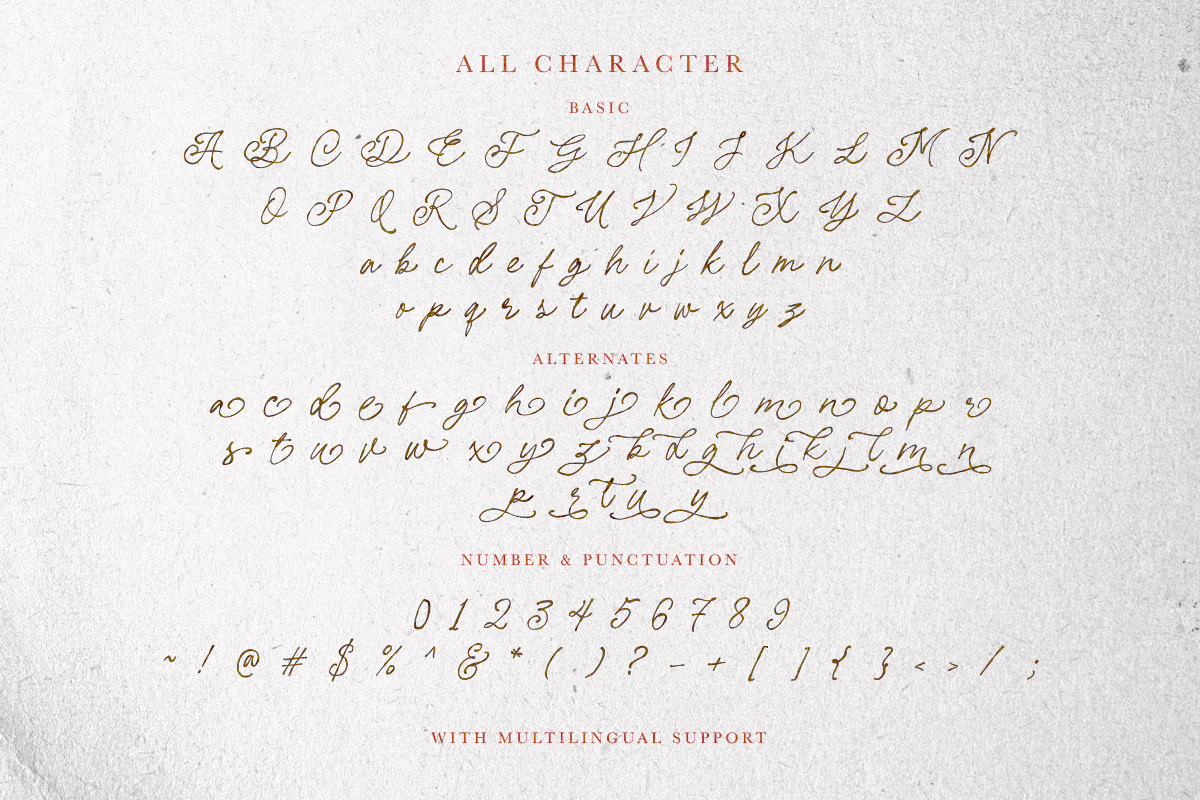 ALL CHARACTER
BASIC
A B C D E F G H I J K L M N
O P Q R S T U V W X Y Z
a b c d e f g h i j k l m n
o p q r s t u v w x y z
ALTERNATES
a c d e f g h i j k l m n o p r
s t u v w x y z b d g h i k j l m n
p r t u y
NUMBER & PUNCTUATION
0 1 2 3 4 5 6 7 8 9
~ ! @ # $ % ^ & * ( ) ? - + [ ] { } < > / ;
WITH MULTILINGUAL SUPPORT